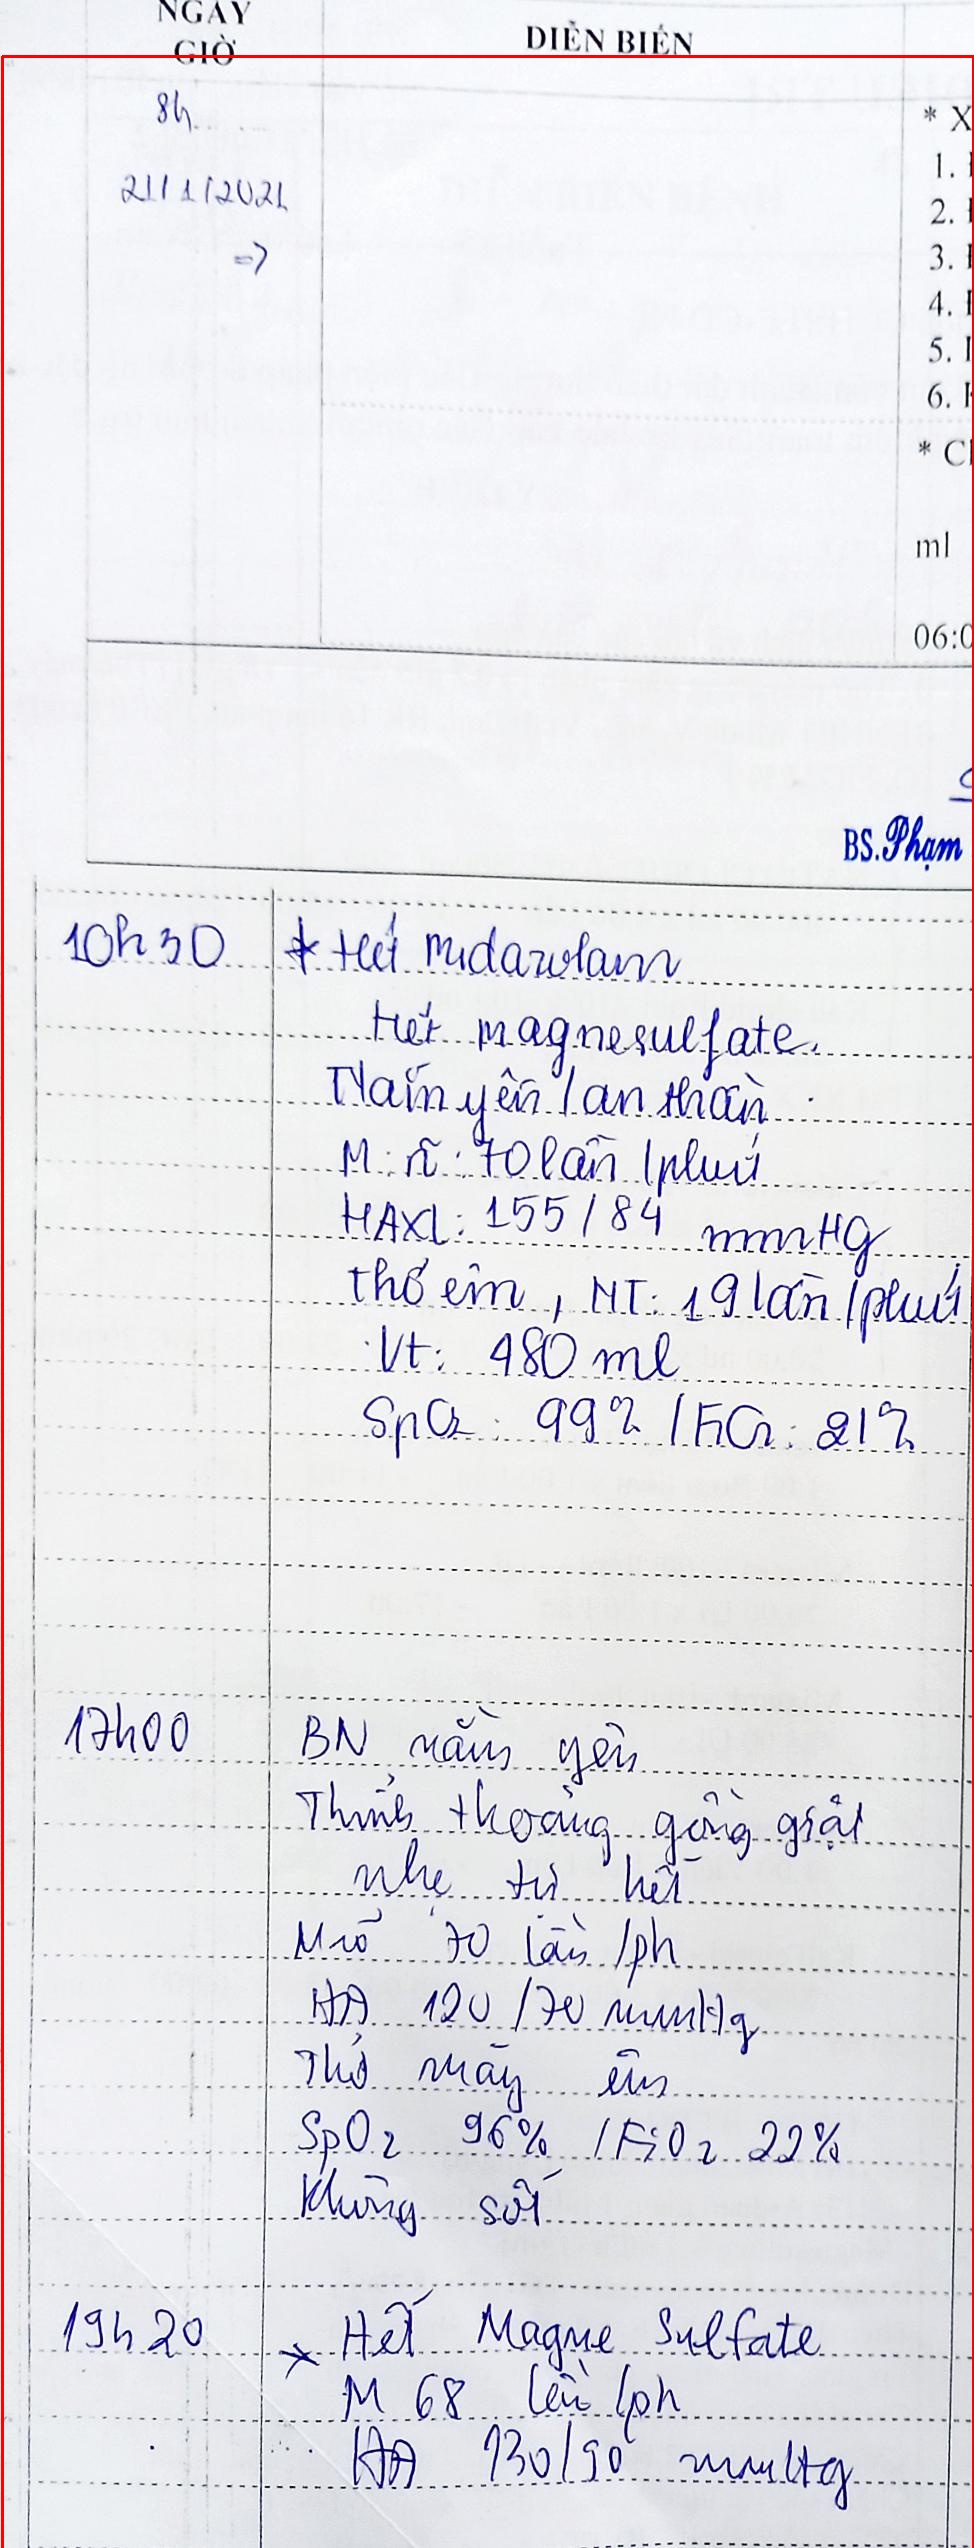 NGÀY
GIỜ
DIỄN BIẾN
8h
21/1/2021
=>
* X
1.
2.
3.
4.
5.
6.
* Cl
ml
06:0
BS. Phạm
10h30
* Hết midazolam
Hết magnesulfate.
Nằm yên / an thần
M: rõ: 70 lần /phút
HAXL: 155/84 mmHg
thở êm, NT: 19 lần /phút
Vt: 480 ml
SpO2: 99% / FiO2: 21%
17h00
BN nằm yên
Thỉnh thoảng gồng giật
nhẹ tự hết
M rõ 70 lần /ph
HA 120/70 mmHg
Thở máy êm
SpO2 96% / FiO2 22%
Không sốt
19h20
* Hết Magne Sulfate
M 68 lần /ph
HA 130/90 mmHg